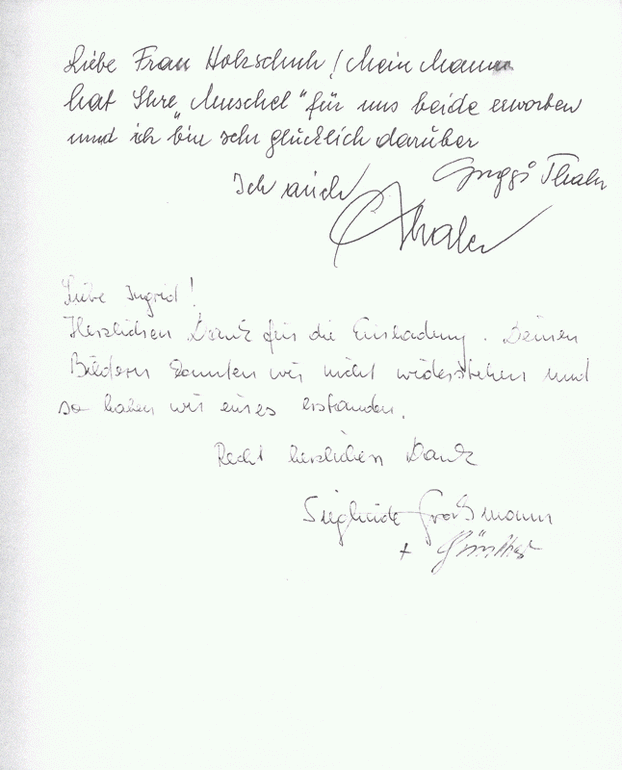 Liebe Frau Holzschuh! Mein Mann
hat Ihre „Muschel“ für uns beide erworben
und ich bin sehr glücklich darüber
Thaler
Ich auch
Thaler
Liebe Ingrid!
Herzlichen Dank für die Einladung. Deinen
Bildern konnten wir nicht widerstehen und
so haben wir eines erstanden.
Recht herzlichen Dank
Sieglinde Großmann
+ Günther